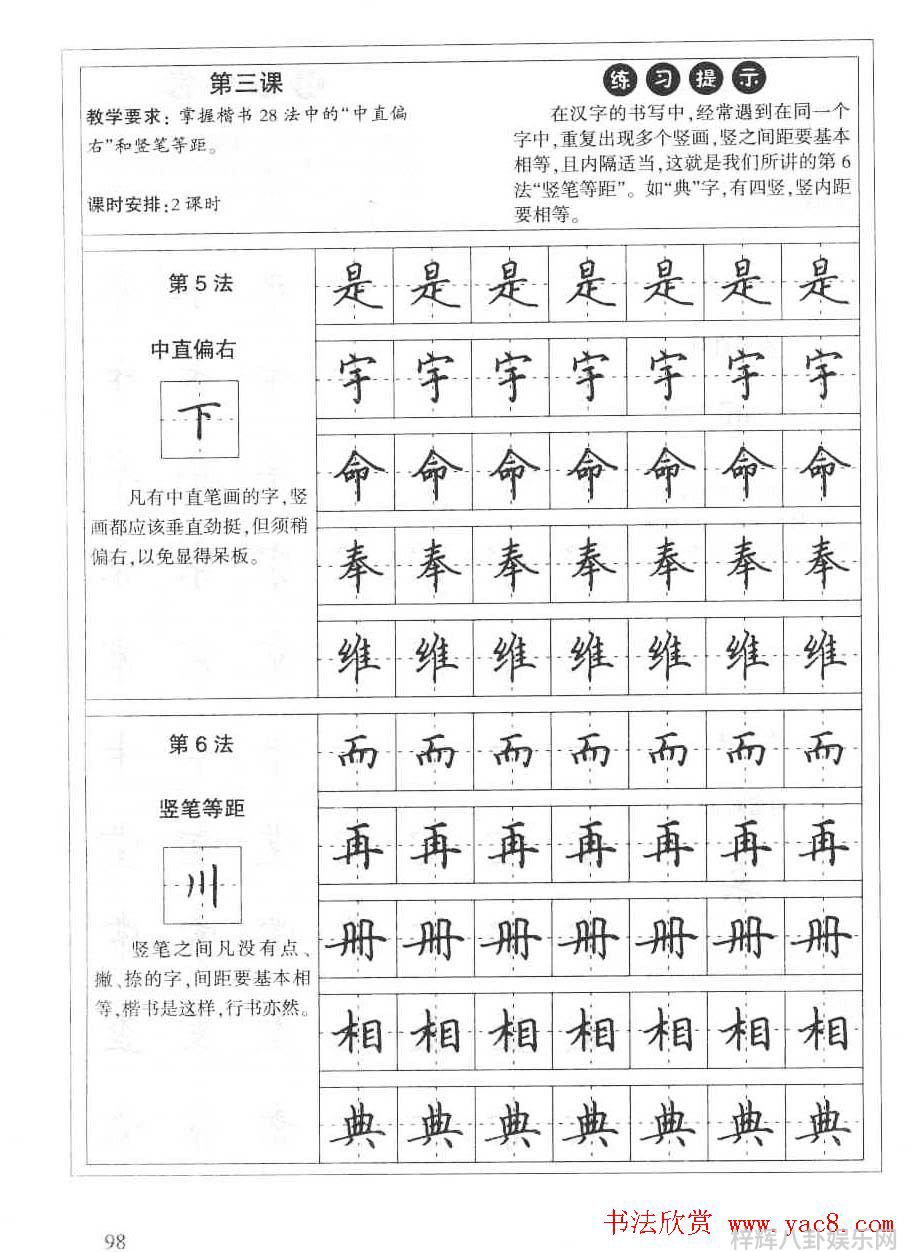 第三课
教学要求：掌握楷书28法中的“中直偏
右”和竖笔等距。
课时安排：2课时
练习提示
在汉字的书写中，经常遇到在同一个
字中，重复出现多个竖画，竖之间距要基本
相等，且内隔适当，这就是我们所讲的第6
法“竖笔等距”。如“典”字，有四竖，竖内距
要相等。
第5法
中直偏右
下
凡有中直笔画的字，竖
画都应该垂直劲挺，但须稍
偏右，以免显得呆板。
是是是是是是是
宇宇宇宇宇宇宇
命命命命命命命
奉奉奉奉奉奉奉
维维维维维维维
第6法
竖笔等距
川
竖笔之间凡没有点、
撇、捺的字，间距要基本相
等，楷书是这样，行书亦然。
而而而而而而而
再再再再再再再
册册册册册册册
相相相相相相相
典典典典典典典
98
书法欣赏 www.yac8.com
梓辉八卦娱乐网